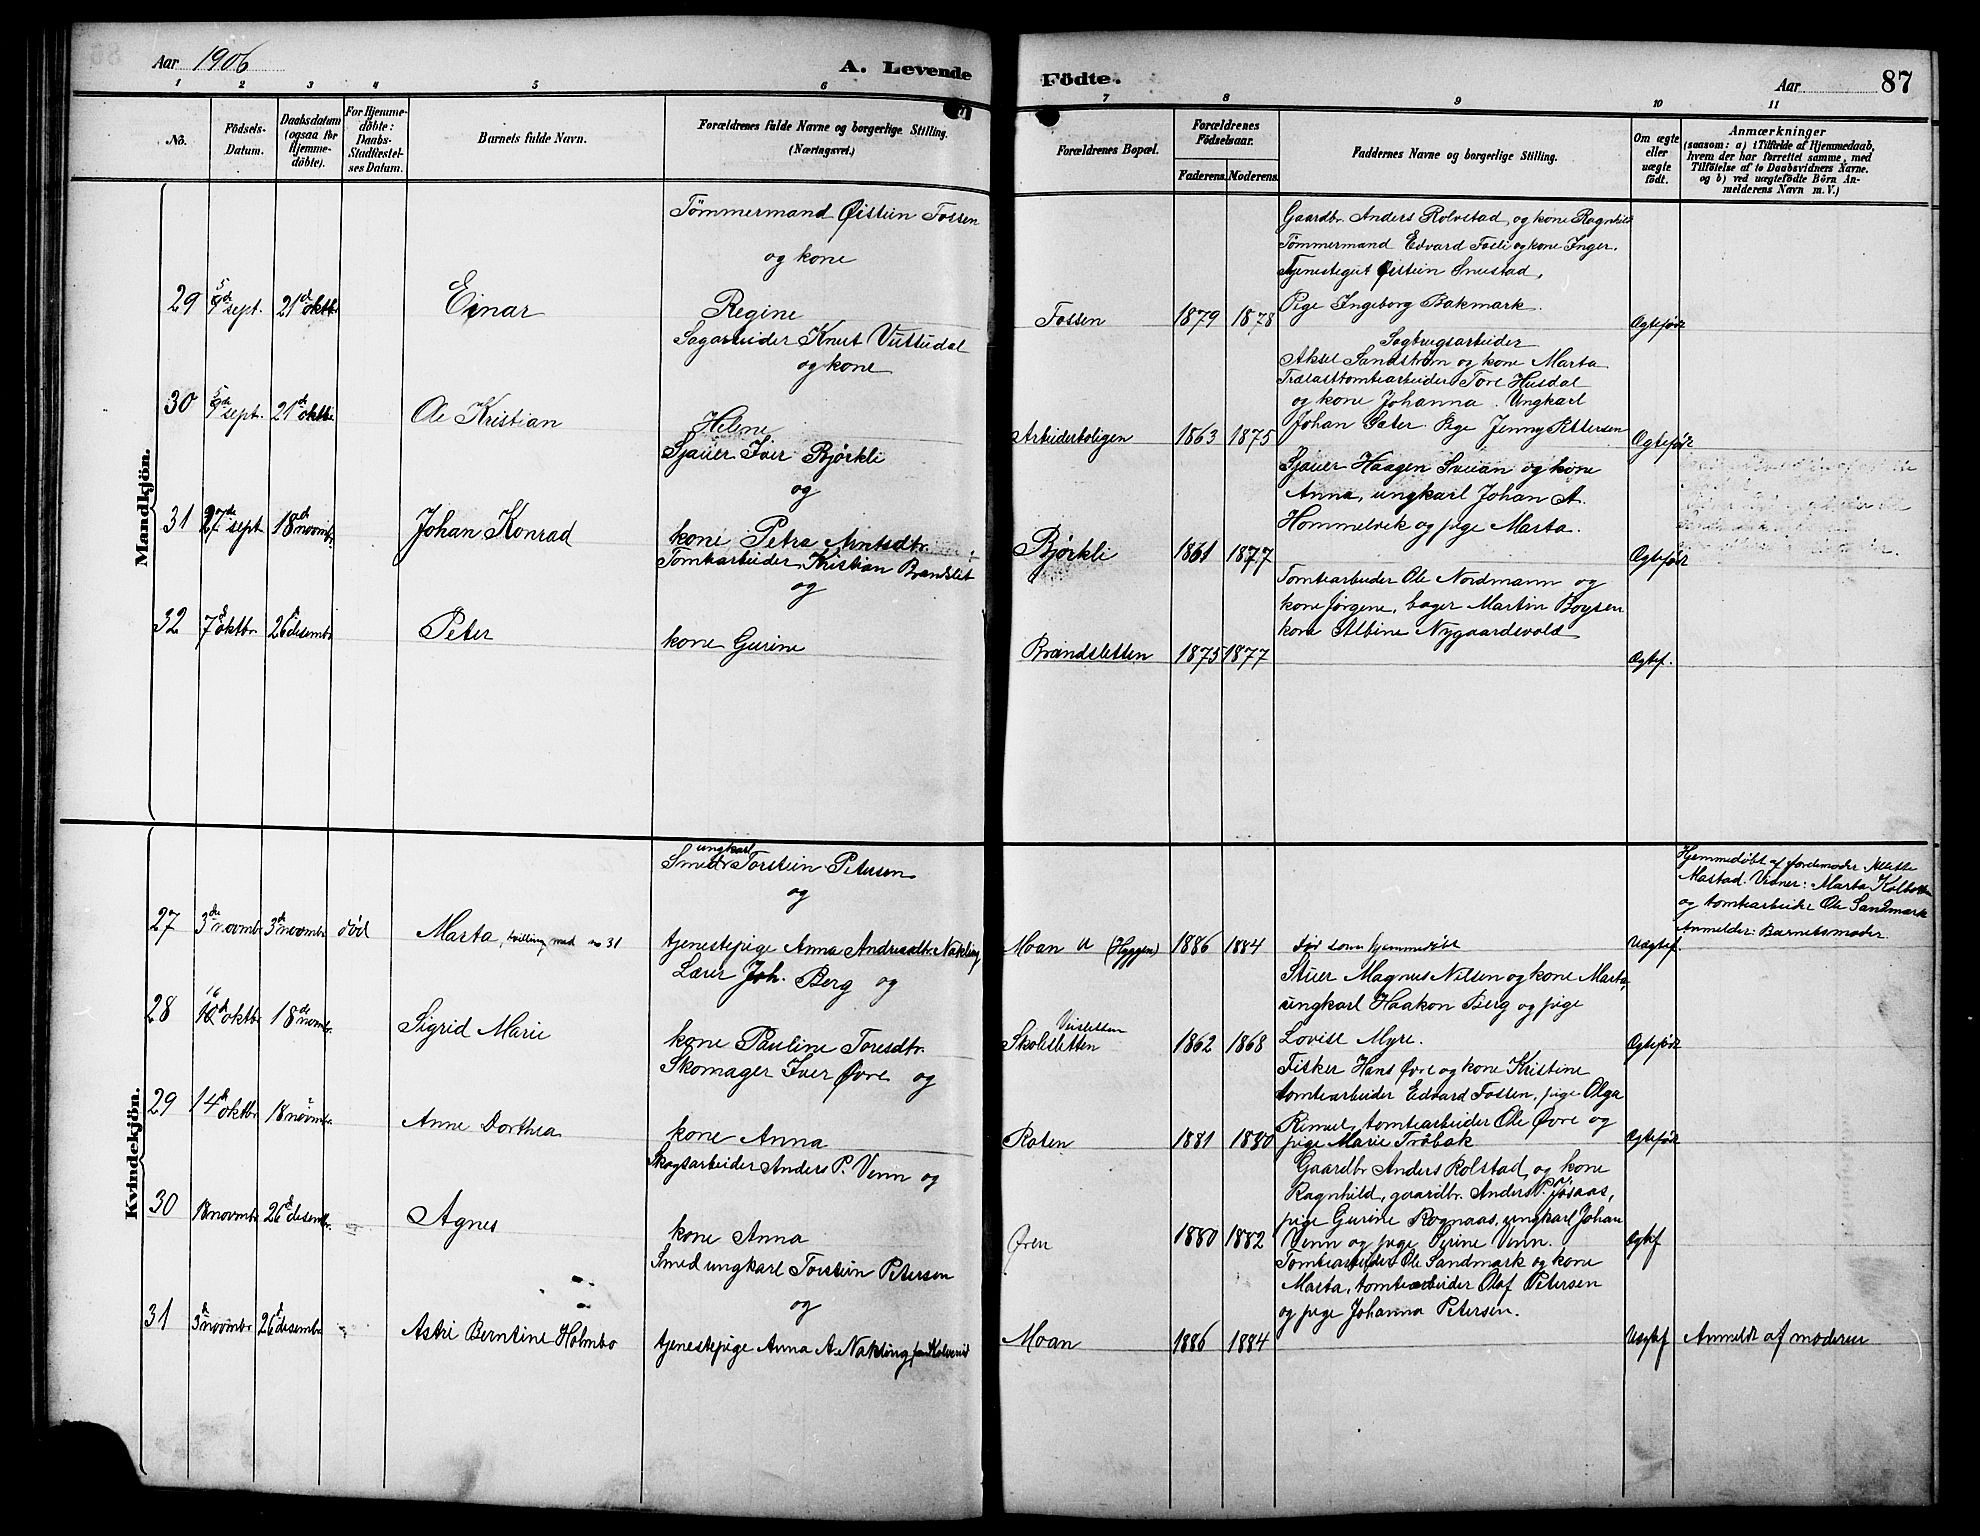 Aar 1906
A. Levende
Födte.
Aar
87
1 2 3 4 5 6 7 8 9 10 11
No.
Födsels-
Datum.
Daabsdatum
(ogsaa for
Hjemme-
döbte).
For Hjemme-
döbte:
Daabs-
Stadfæstel-
ses Datum.
Barnets fulde Navn.
Forældrenes fulde Navne og borgerlige Stilling.
(Næringsvei.)
Forældrenes Bopæl.
Forældrenes
Födselsaar.
Faderens. Moderens.
Faddernes Navne og borgerlige Stilling.
Om ægte
eller
uægte
födt.
Anmærkninger
(saasom: a) i Tilfælde af Hjemmedaab,
hvem der har forrettet samme, med
Tilföielse af to Daabsvidners Navne.
og b) ved uægtefödte Börn An-
melderens Navn m. V.)
Mandkjön.
29
5 sept.
21de oktbr
Einar
Tømmermand Øistein Fossen
og kone
Regine
Fossen
1879 1878
Gaardbr. Anders Rolvstad, og kone Ragnhild
Tømmermand Edvard Fosli og kone Inger.
Tjenestegut Øistein Snustad,
Pige Ingeborg Bakmark.
Ægtefødt
30
sept.
21de oktbr
Ole Kristian
Sagarbeider Knut Vuttudal
og kone
Helene
Arbeiderboligen
1863 1875
Sagbrugsarbeider
Aksel Sandström og kone Marta
Trælasttomtearbeider Tore Husdal
og kone Johanna. Ungkarl
Johan Sæter. Pige Jenny Pettersen
Ægtefødt
31
27de sept
18de novmbr.
Johan Konrad
Sjauer Iver Bjørkli
og
kone Petra Arntsdtr.
Bjørkli
1861 1877
Sjauer Haagen Sveian og kone
Anna, ungkarl Johan A.
Hommelvik og pige Marta.
Ægtefødt
32
7de oktbr.
26 desembr
Peter
Tomtearbeider Kristian Brandslet
og
kone Gurine
Brandsletten
1875 1877
Tomtearbeider Ole Nordmann og
kone Jørgine, bager Martin Boysen
kone Albine Nygaardsvold
Ægtef.
Kvindekjön.
27
3de novmbr
3de novmbr
død
Marta, tvilling med no 31
ungkarl
Smed Torstein Petersen
og
tjenestepige Anna Andreasdtr. Nakling
Moan u (Hyggen)
1886 1884
død som hjemmedøbt
Uægtef.
Hjemmedøbt af jordemoder Mette
Mastad. Vidner: Marta Kolbotten
og tomtearbeider Ole Sandmark
Anmelder: Barnets moder.
28
16 oktbr
18de novmbr.
Sigrid Marie
Lærer Joh. Berg og
kone Pauline Toresdtr.
Veisletten
Skolesletten
1862 1868
Stuer Magnus Nilsen og kone Marta,
ungkarl Haakon Berg og pige
Lovise Myre.
Ægtefødt
29
14de oktbr
18 novmbr
Anne Dorthea
Skomager Iver Øvre og
kone Anna
Roten
1881 1880
Fisker Hans Øvre og kone Kristine
tomtearbeider Edvard Fossen, pige Olga
Rimul, tomtearbeider Ole Øvre og
pige Marie Trøbak
Ægtefødt
30
18 novmbr
26de desembr.
Agnes
Skogsarbeider Anders P. Venn og
kone Anna
Øren
1880 1882
Gaardbr Anders Rolstad, og kone
Ragnhild, gaardbr. Anders P. Jøsaas,
pige Gurine Rognaas, ungkarl Johan
Venn og pige Serine Venn.
Ægtef
31
3de novmbr
26de desembr
Astri Berntine Holmbo
Smed ungkarl Torstein Petersen
og
tjenestepige Anna A. Nakling fra Kolvereid
Moan
1886 1884
Tomtearbeider Ole Sandmark og kone
Marta, tomtearbeider Olaf Petersen
og pige Johanna Petersen.
Uægtef
Anmeldt af moderen